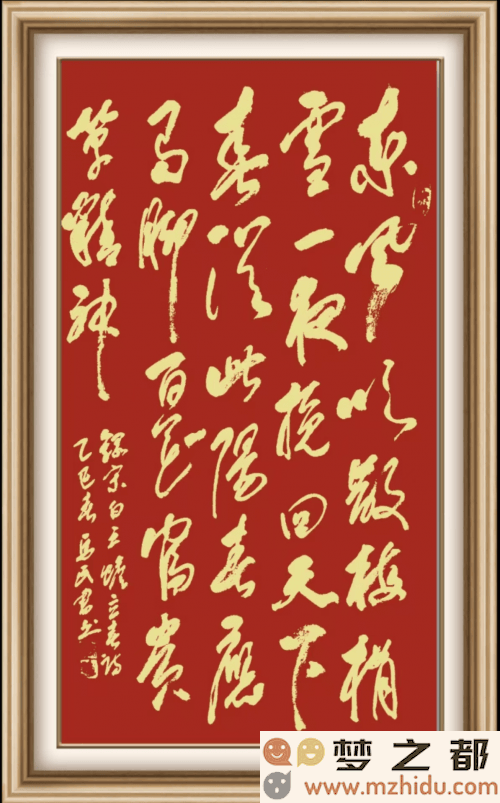 東風吹散梅梢
雪一夜挽回天下
春從此陽春應
有腳百花富貴
草精神
錄宋白玉蟾立春詩
乙巳春
梦之都
www.mzhidu.com